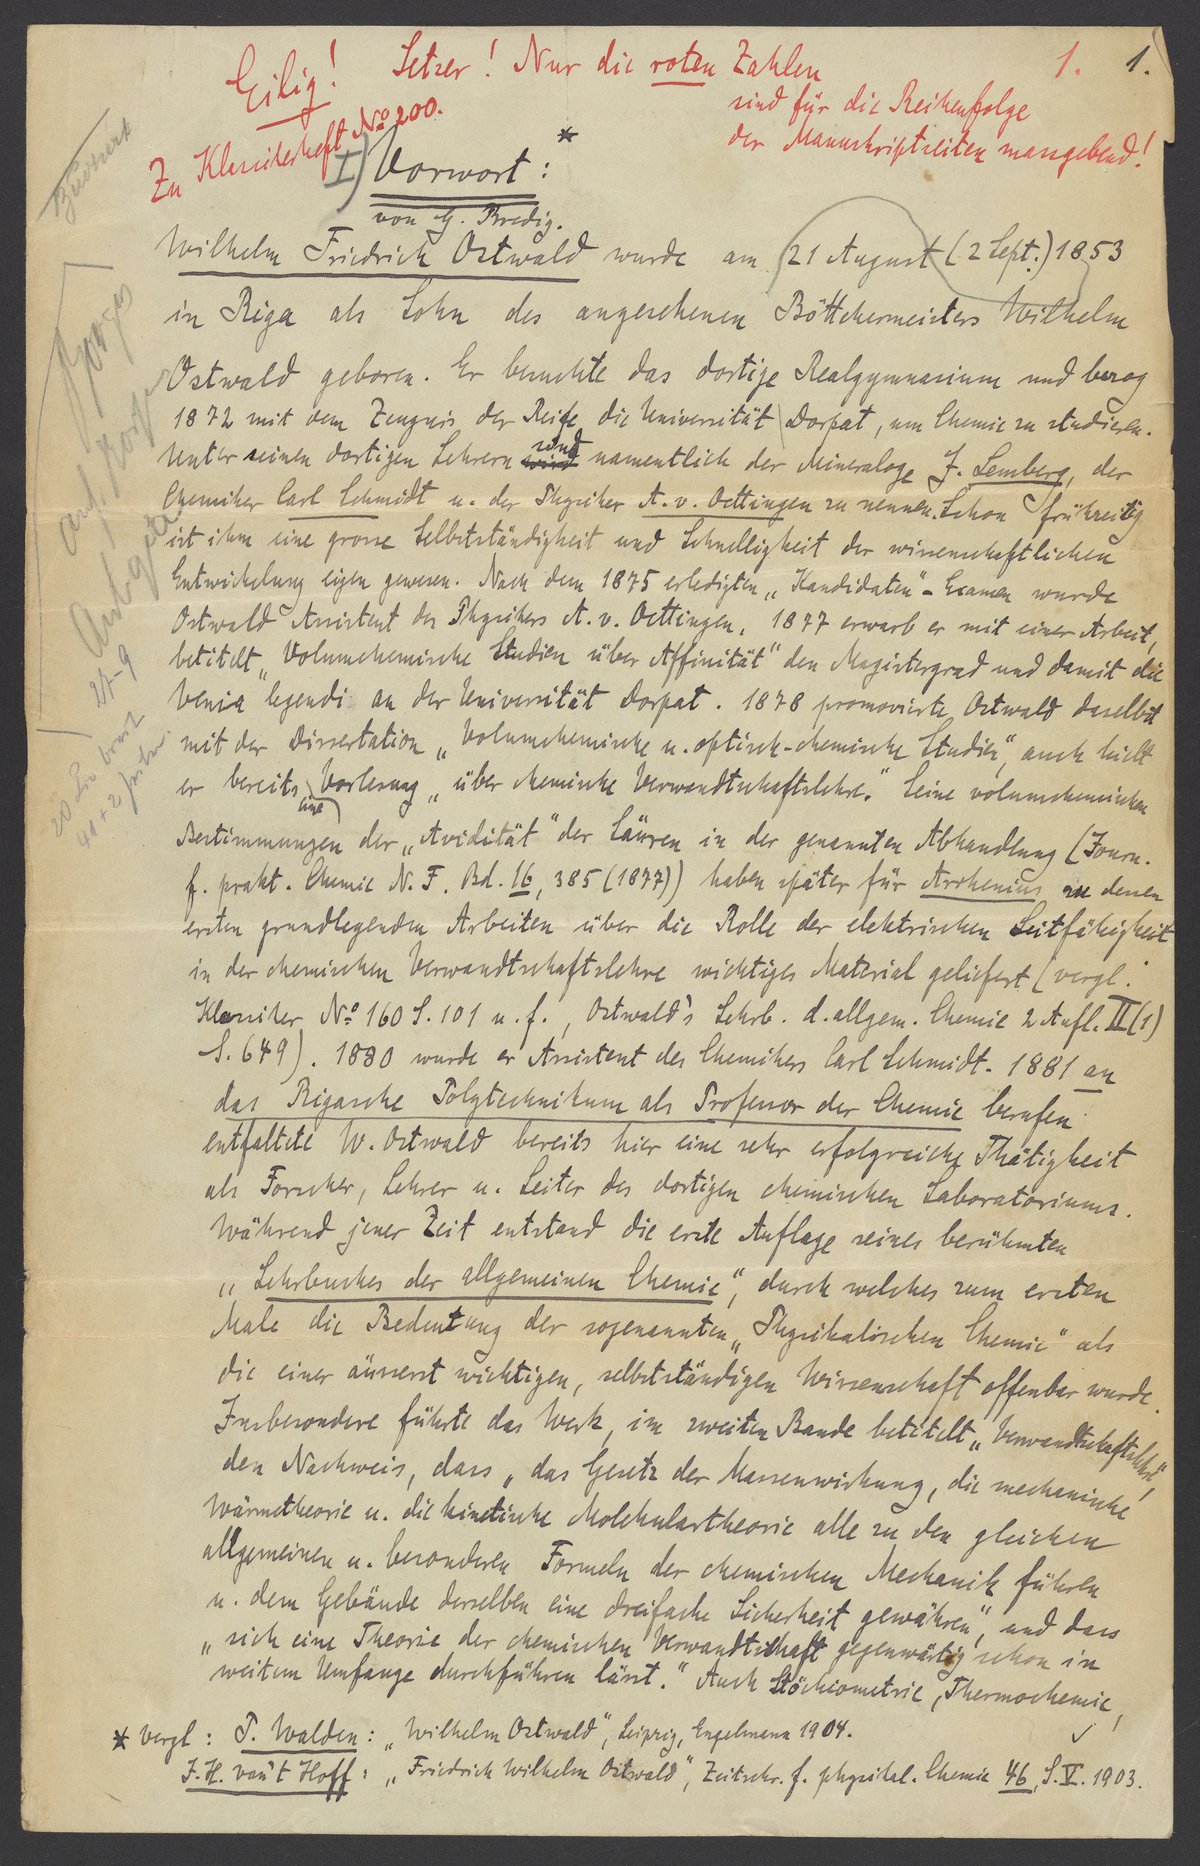 Eilig! Setzer! Nur die roten Zahlen 1. 1.
sind für die Reihenfolge
der Manuskriptseiten massgebend!
Zu Klassikerheft No 200.
I) Vorwort: *
von G. Bredig.
Wilhelm Friedrich Ostwald wurde am 21 August (2 Sept.) 1853
in Riga als Sohn des angesehenen Böttchermeisters Wilhelm
Ostwald geboren. Er besuchte das dortige Realgymnasium und bezog
1872 mit dem Zeugnis der Reife die Universität Dorpat, um Chemie zu studieren.
Unter seinen dortigen Lehrern sind namentlich der Mineraloge J. Lemberg, der
Chemiker Carl Schmidt u. der Physiker A. v. Oettingen zu nennen. Schon frühzeitig
ist ihm eine grosse Selbstständigkeit und Schnelligkeit der wissenschaftlichen
Entwickelung eigen gewesen. Nach dem 1875 erledigten „Kandidaten"-Examen wurde
Ostwald Assistent des Physikers A. v. Oettingen. 1877 erwarb er mit einer Arbeit,
betitelt „Volumchemische Studien über Affinität" den Magistergrad und damit die
Venia legendi an der Universität Dorpat. 1878 promovierte Ostwald daselbst
mit der Dissertation „Volumchemische u. optisch-chemische Studien", auch hielt
er bereits eine Vorlesung „über chemische Verwandtschaftslehre." Seine volumchemischen
Bestimmungen der „Avidität" der Säuren in der genannten Abhandlung (Journ.
f. prakt. Chemie N. F. Bd. 16, 385 (1877)) haben später für Arrhenius zu dessen
ersten grundlegenden Arbeiten über die Rolle der elektrischen Leitfähigkeit
in der chemischen Verwandtschaftslehre wichtiges Material geliefert (vergl.
Klassiker No 160 S. 101 u. f., Ostwald's Lehrb. d. allgem. Chemie 2 Aufl. II (1)
S. 649). 1880 wurde er Assistent des Chemikers Carl Schmidt. 1881 an
das Rigasche Polytechnikum als Professor der Chemie berufen
entfaltete W. Ostwald bereits hier eine sehr erfolgreiche Thätigkeit
als Forscher, Lehrer u. Leiter des dortigen chemischen Laboratoriums.
Während jener Zeit entstand die erste Auflage seines berühmten
„Lehrbuches der allgemeinen Chemie", durch welches zum ersten
Male die Bedeutung der sogenannten „Physikalischen Chemie" als
die einer äusserst wichtigen, selbstständigen Wissenschaft offenbar wurde.
Insbesondere führte das Werk, im zweiten Bande betitelt „Verwandtschaftslehre"
den Nachweis, dass „das Gesetz der Massenwirkung, die mechanische
Wärmetheorie u. die kinetische Molekulartheorie alle zu den gleichen
allgemeinen u. besonderen Formeln der chemischen Mechanik führen
u. dem Gebäude derselben eine dreifache Sicherheit gewähren", und dass
„sich eine Theorie der chemischen Verwandtschaft gegenwärtig schon in
weitem Umfange durchführen lässt." Auch Stöchiometrie, Thermochemie,
* Vergl: P. Walden: „Wilhelm Ostwald", Leipzig, Engelmann 1904.
J. H. van't Hoff: „Friedrich Wilhelm Ostwald", Zeitschr. f. physikal. Chemie 46, S. V. 1903.